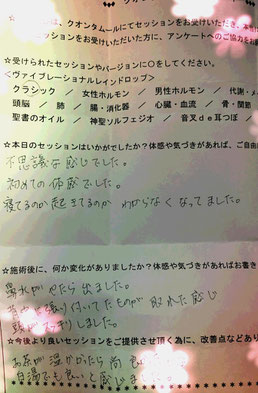 は、クオンタムールにてセッションをお受けいただき、
セッションをお受けいただいた方に、アンケートへのご協力をお
☆受けられたセッションやバージョンに〇をしてください。
<ヴァイブレーショナルレインドロップ>
クラシック / 女性ホルモン / 男性ホルモン / 代謝・
頭脳 / 肺 / 腸・消化器 / 心臓・血流 / 骨・関節
聖書のオイル / 神聖ソルフェジオ / 音叉de耳つぼ /
☆本日のセッションはいかがでしたか?体感や気づきがあれば、ご自由
不思議な感じでした。
初めての体感でした。
寝てるのか起きてるのか わからなくなってました。
☆施術後に、何か変化がありましたか?体感や気づきがあればお書き
鼻水がやたら出ました。
張り付いてたものが取れた感じ
しました。
☆今後より良いセッションをご提供させて頂く為に、改善点などあり
お茶が温かかったら尚良
白湯でも良いと感じました。